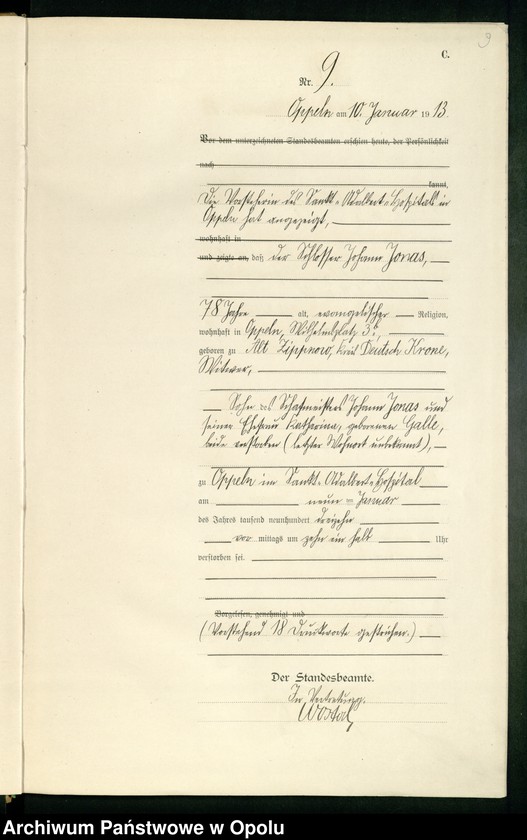 C.
9
Nr. 9.
Oppeln am 10. Januar 1913.
Vor dem unterzeichneten Standesbeamten erschien heute, der Persönlichkeit
nach
kannt,
Die Vorsteherin des Sankt-Adalbert-Hospitals in
Oppeln hat angezeigt,
wohnhaft in
und zeigte an, daß der Schlosser Johann Jonas,
78 Jahre alt, evangelischer Religion,
wohnhaft in Oppeln, Wilhelmsplatz 3
geboren zu Alt Zippnow, Kreis Deutsch Krone,
Witwer,
Sohn des Schafmeisters Johann Jonas und
seiner Ehefrau Katharina, geborenen Galle,
beide verstorben (letzter Wohnort unbekannt),
zu Oppeln im Sankt-Adalbert-Hospital
am neun ten Januar
des Jahres tausend neunhundert dreizehn
vor mittags um zehn ein halb Uhr
verstorben sei.
Vorgelesen, genehmigt und
(Vorstehend 18 Druckworte gestrichen.)
Der Standesbeamte.
In Vertretung.
Archiwum Państwowe w Opolu